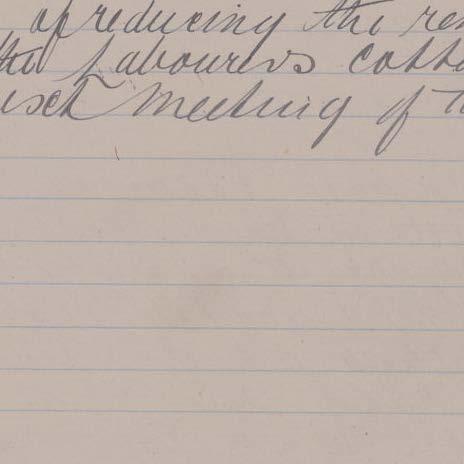 of reducing the ren
the Labourers cotta
next meeting of t